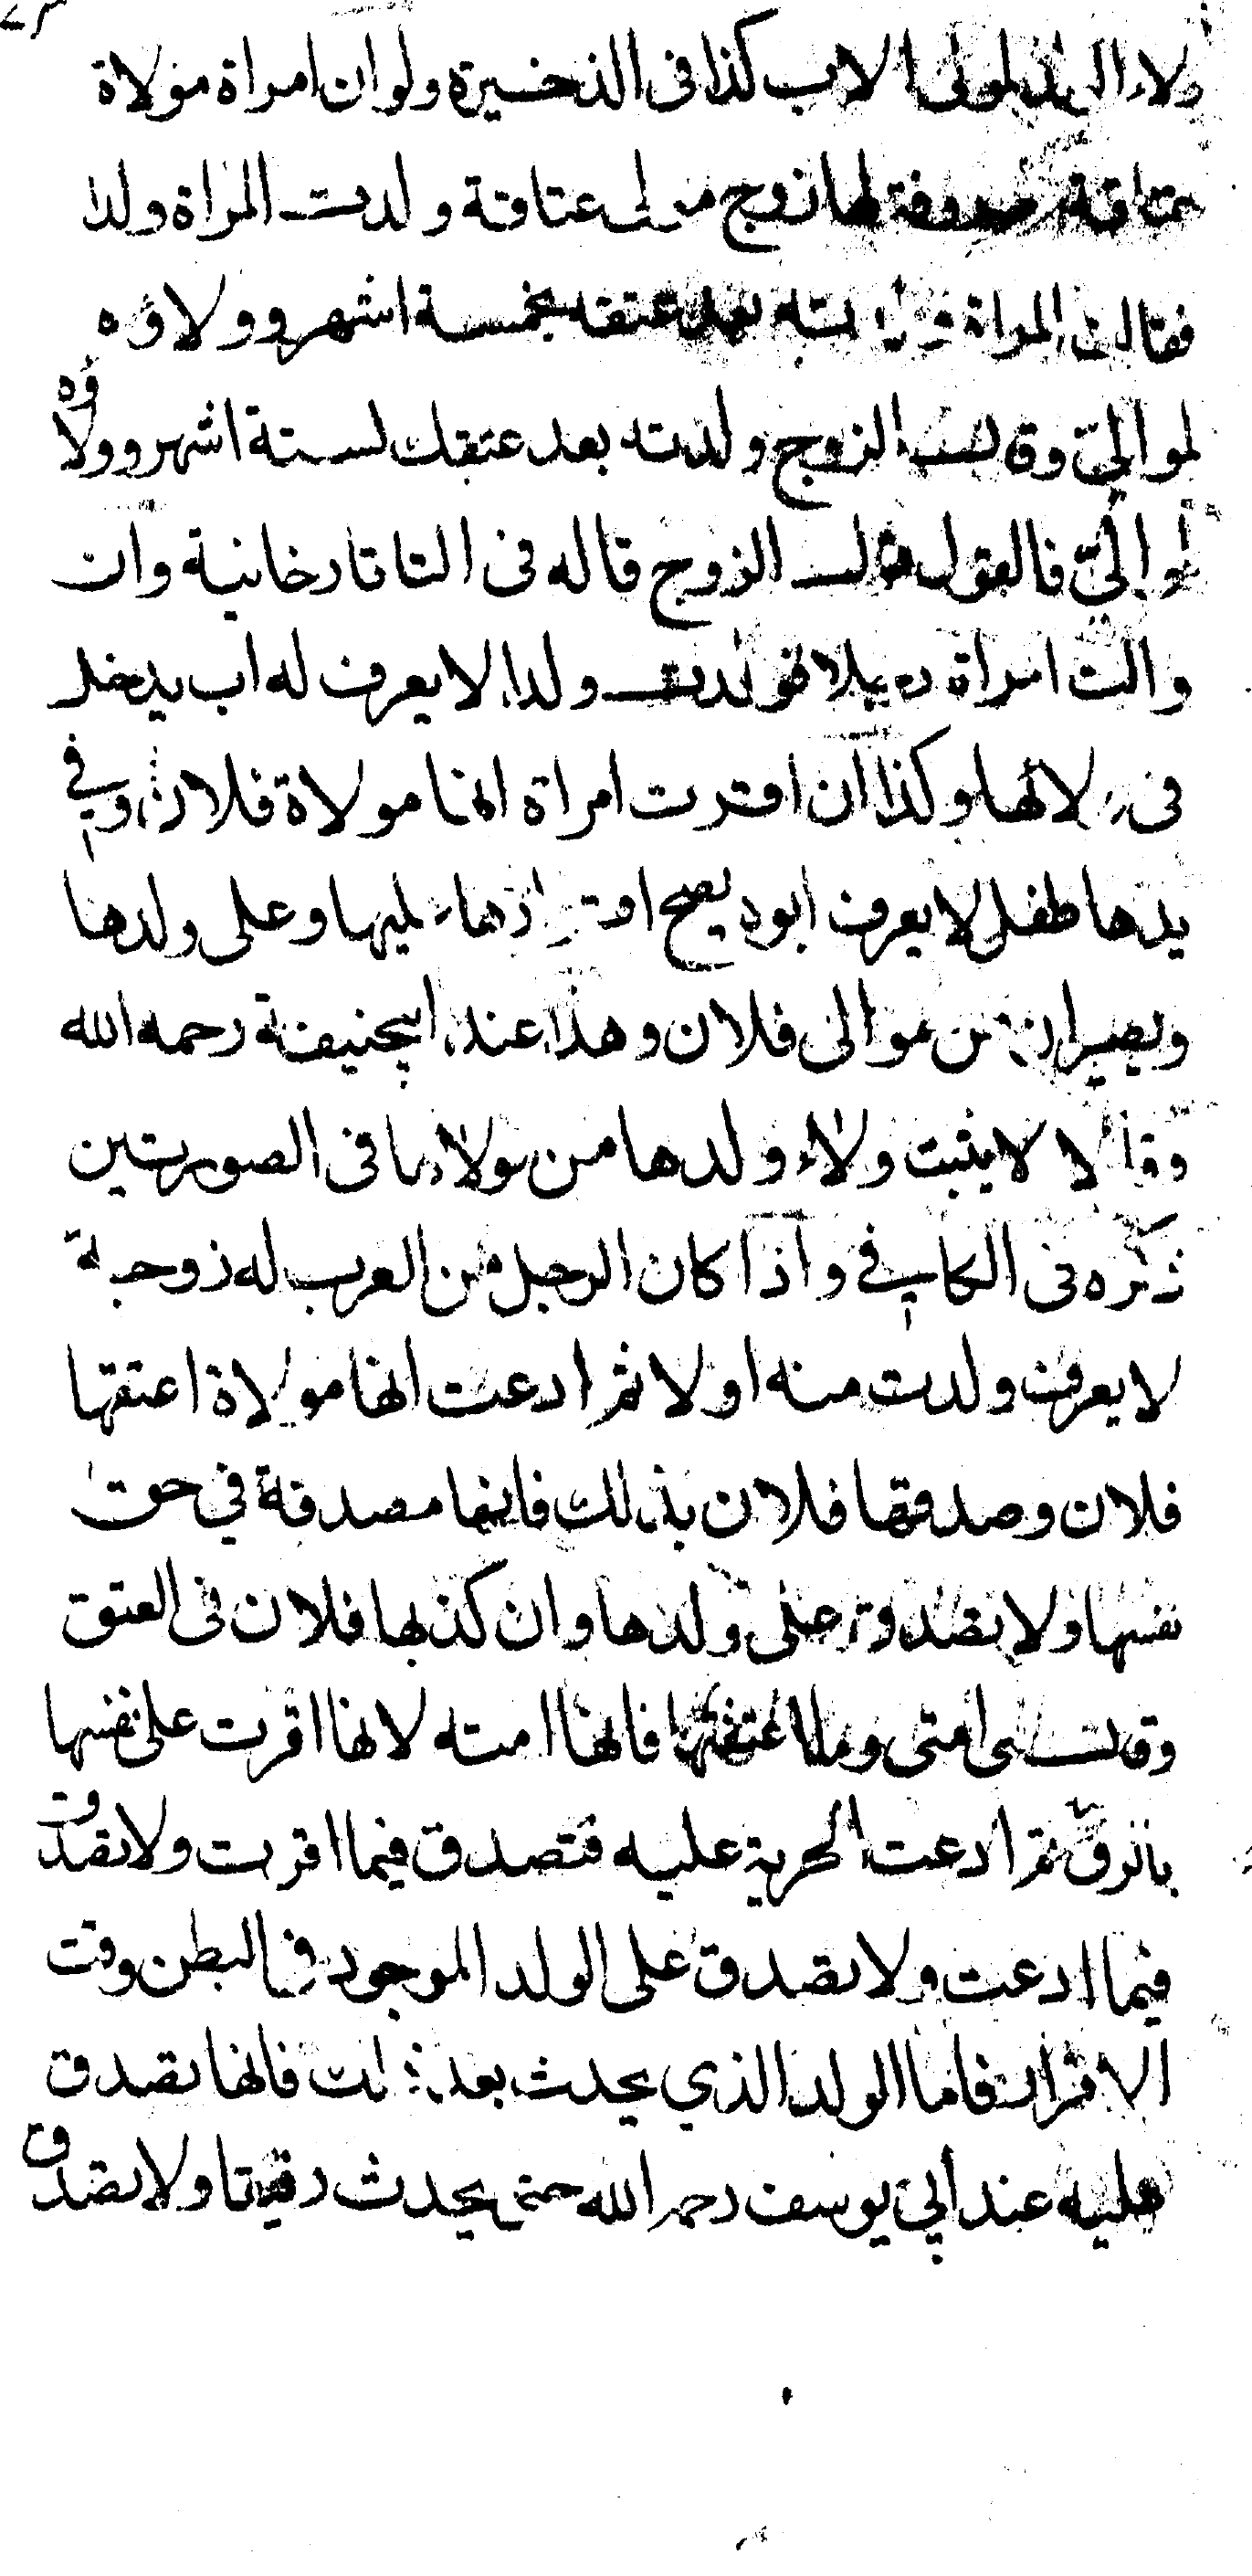 ولاء الولد لمولى الاب كذا فى الذخيرة ولو ان امراة مولاة
عتاقة معروفة لها زوج مولى عتاقة ولدت المراة ولدا
فقالت المراة ولدته بعد عتقه بخمسة اشهر وولاؤه
لموالي وقال الزوج ولدته بعد عتقك لستة اشهر وولاؤه
لموالي فالقول قول الزوج قاله فى التاتارخانية وان
والت امراة رجلا فولدت ولدا لا يعرف له اب يدخل
فى ولائها وكذا ان اقرت امراة انها مولاة فلان وفي
يدها طفل لا يعرف ابوه يصح اقرارها عليها وعلى ولدها
ويصيران من موالى فلان وهذا عند ابيحنيفة رحمه الله
وقالا لا يثبت ولاء ولدها من مولاها فى الصورتين
ذكره فى الكافي واذا كان الرجل من العرب له زوجة
لا يعرف ولدت منه اولا ثم ادعت انها مولاة اعتقها
فلان وصدقها فلان بذلك فانها مصدقة في حق
نفسها ولا تصدق على ولدها وان كذبها فلان فى العتق
وقال هى امتى وما اعتقتها فانها امته لانها اقرت على نفسها
بالرق ثم ادعت الحرية عليه فتصدق فيما اقرت ولا تصدق
فيما ادعت ولا تصدق على الولد الموجود فى البطن وقت
الاقرار فاما الولد الذي يحدث بعد ذلك فانها تصدق
عليه عند أبي يوسف رحمه الله حتى يحدث رقيقا ولا تصدق